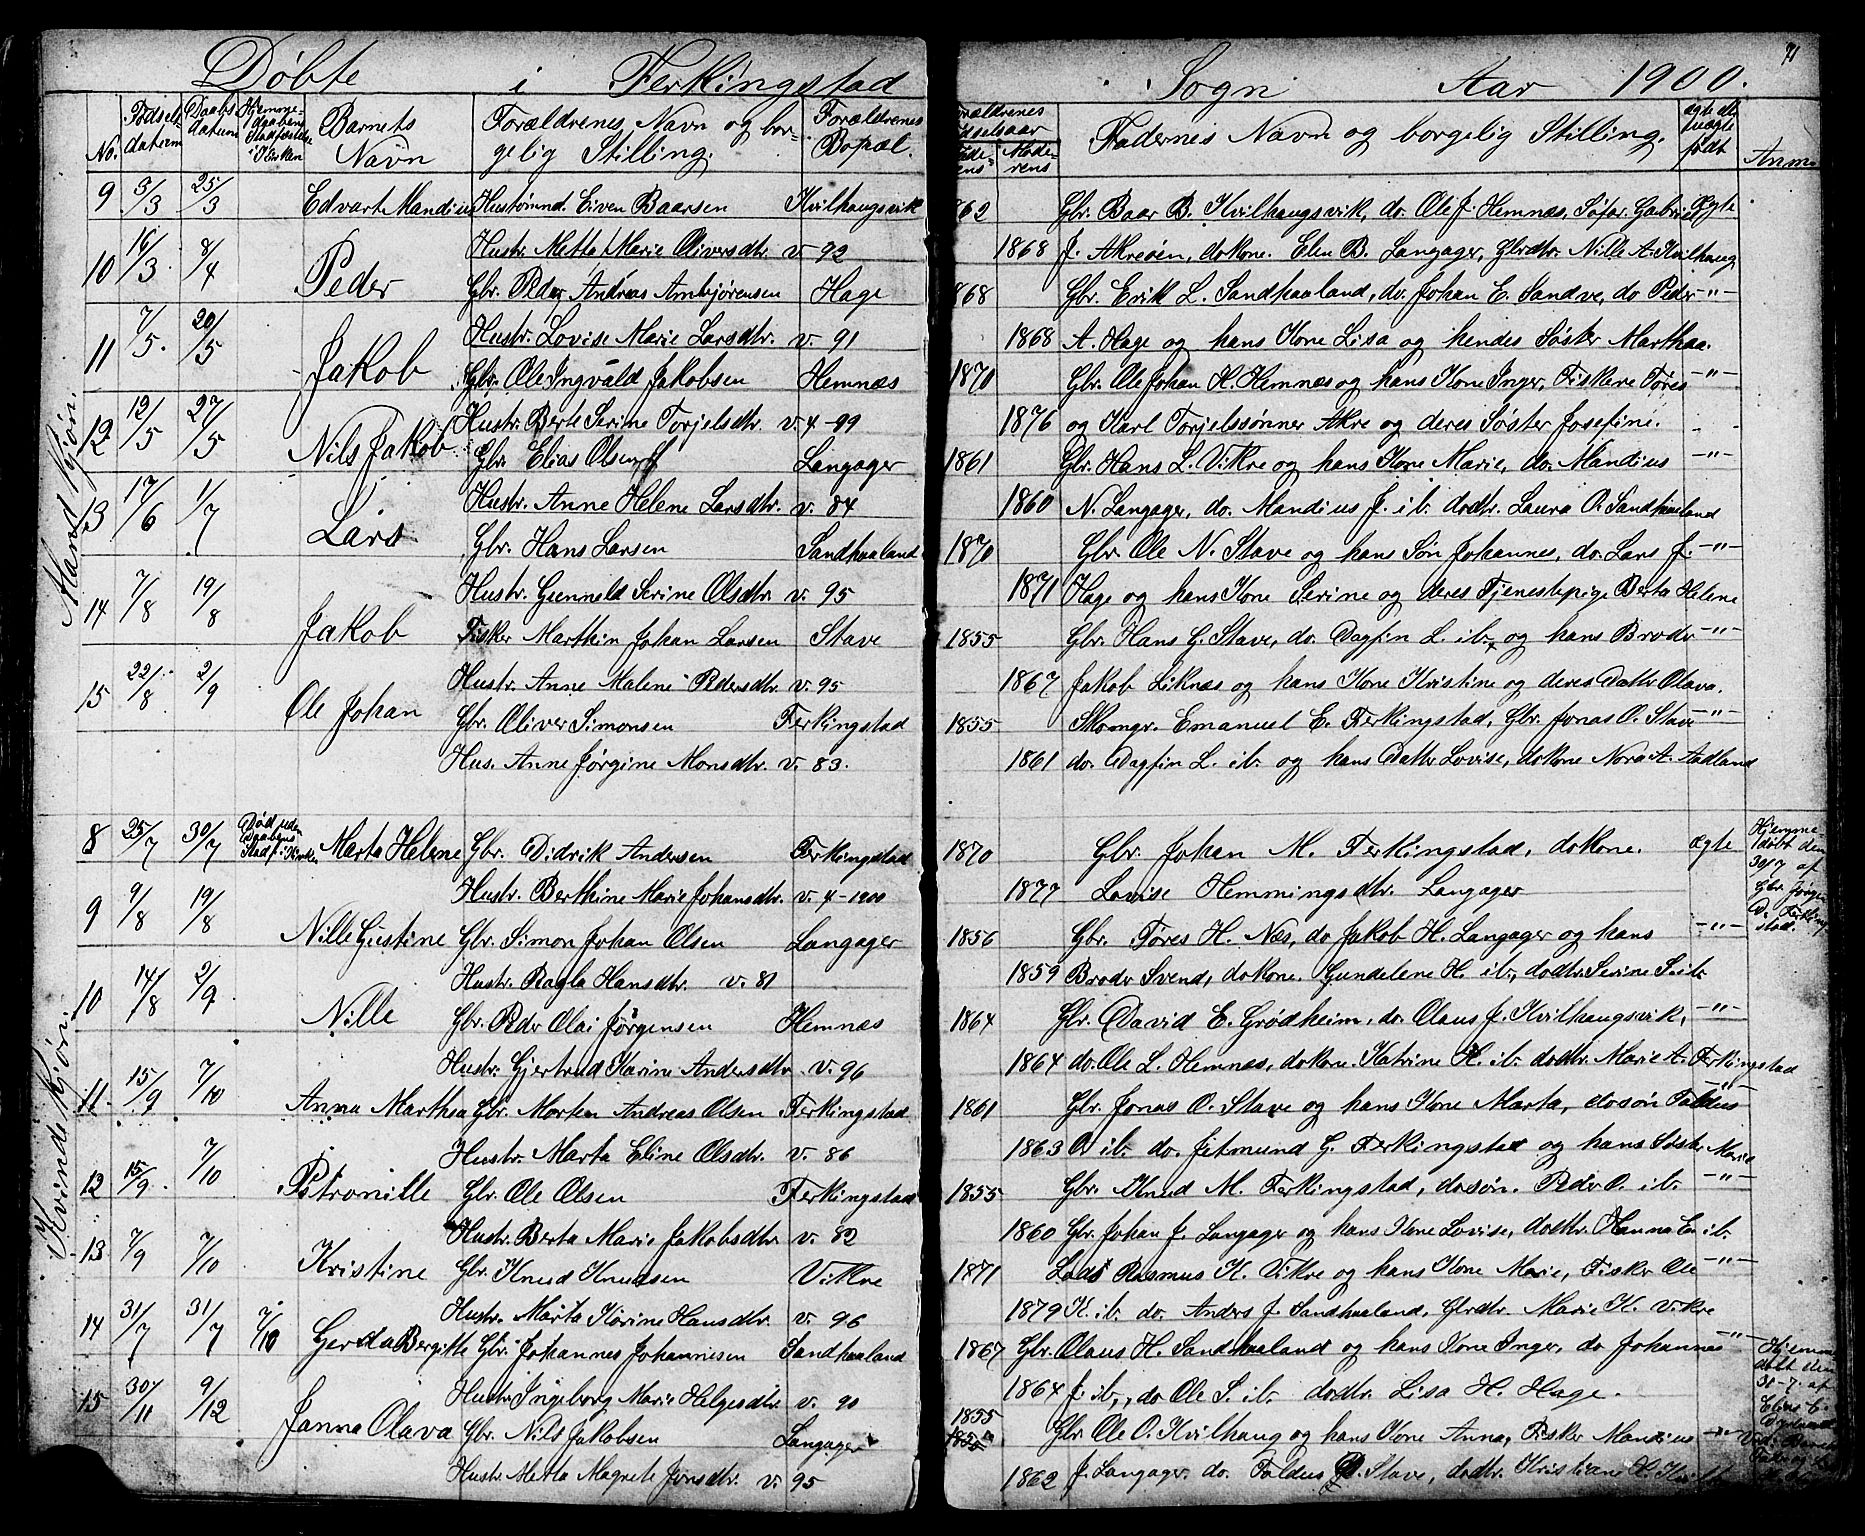 Døbte i Ferkingstad Sogn Aar 1900.
71
No. Fødsels datum Daabs datum Hjemme daabens Stadfæstelse i Kirken Barnets Navn Forældrenes Navn og borgelig Stilling. Forældrenes Bopæl.
Forældrenes Fødselsaar Faderens Moderens Fadernes Navn og borgelig Stilling. Ægte ell. uægte født Anm.
Mandkjøn.
9 3/3 25/3 Edvart Mandius Hustømnd. Eiven Baarsen Kvilhaugsvik 862 Gbr. Baar B. Kvilhaugsvik, do. Ole J. Hemnæs, Søfar. Gabriel Ægte
Hustr. Metta Marie Oliversdtr. v. 92 1868 J. Akreøen, do kone. Elen B. Langager, Gbrdtr. Nille A. Kvilhaug
10 16/3 8/4 Peder Gbr. Peder Andreas Ambjørensen Hage 868 Gbr. Erik L. Sandhaaland, do. Johan E. Sandve, do Peder -"-
Hustr. Lovise Marie Larsdtr. v. 91 1868 A. Hage og hans Kone Lisa og hendes Søster Marthaa.
11 7/5 20/5 Jakob Gbr. Ole Ingvald Jakobsen Hemnæs 1870 Gbr. Ole Johan H. Hemnæs og hans Kone Inger, Fiskere Tøres -"-
Hustr. Berte Serine Torjelsdtr. v. 4-99 1876 og Karl Torjelssønner Akre og deres Søster Josefine.
12 12/5 27/5 Nils Jakob Gbr. Elias Olsen Langager 1861 Gbr. Hans L. Vikre og hans Kone Marie, do. Mandius -"-
Hustr. Anne Helene Larsdtr. v. 84 1860 N. Langager, do. Mandius J. ib. dodtr. Laura O. Sandhaaland
13 17/6 1/7 Lars Gbr. Hans Larsen Sandhaaland 1870 Gbr. Ole N. Stave og hans Søn Johannes, do. Lars J. -"-
Hustr. Gunneld Serine Olsdtr. v. 95 1871 Hage og hans Kone Serine og deres Tjenestepige Berta Helene
14 7/8 19/8 Jakob Fisker Marthin Johan Larsen Stave 1855 Gbr. Hans G. Stave, do. Dagfin L. ib. og hans Broder -"-
Hustr. Anne Malene Pedersdtr. v. 95 1867 Jakob Liknæs og hans Kone Kristine og deres Datter Olava.
15 22/8 2/9 Ole Johan Gbr. Oliver Simonsen Ferkingstad 1855 Skomgr. Emanuel E. Ferkingstad, Gbr. Jonas O. Stave -"-
Hus. Anne Jørgine Monsdtr. v. 83. 1861 do. Dagfin L. ib. og hans Datter Lovise, do kone Nora A. Aadland
Kvindekjøn.
8 25/7 30/7 Død uden Daabens Stadf. i Kirken Marta Helene Gbr. Didrik Andersen Ferkingstad 1870 Gbr. Johan M. Ferkingstad, do kone. Ægte Hjemmedøbt den 30/7 af Gbr. Jørgen D. Ferkingstad.
Hustr. Berthine Marie Johansdtr. v. 4-1900 1877 Lovise Hemmingsdtr. Langager
9 9/8 19/8 Nille Gustine Gbr. Simon Johan Olsen Langager 1856 Gbr. Tøres H. Næs, do Jakob H. Langager og hans -"-
Hustr. Ragla Hansdtr. v. 81 1859 Broder Svend, do kone. Gundelene H. ib., dodtr. Serine S. ib.
10 14/8 2/9 Nille Gbr. Peder Olai Jørgensen Hemnæs 1864 Gbr. David E. Grødheim, do. Olaus J. Kvilhaugsvik, -"-
Hustr. Gjertrud Karine Andersdtr v. 96 1864 do. Ole L. Hemnæs, do kone. Katrine H. ib. dodtr. Marie A. Ferkingstad
11. 15/9 7/10 Anna Marthea Gbr. Morten Andreas Olsen Ferkingstad 1861 Gbr. Jonas O. Stave og hans Kone Marta, do søn Faldus -"-
Hustr. Marta Eline Olsdtr. v. 86 1863 O ib. do. Jetmund G. Ferkingstad og hans Søster Marie
12 15/9. 7/10 Petronille Gbr. Ole Olsen Ferkingstad 1855 Gbr. Knud M. Ferkingstad, do søn. Peder O. ib. -"-
Hustr. Berta Marie Jakobsdtr. v. 82 1860 Gbr. Johan J. Langager og hans Kone Lovise, dodtr. Hanna E. ib.
13 7/9 7/10 Kristine Gbr. Knud Knudsen Vikre 1871 Lods Rasmus K. Vikre og hans Kone Marie, Fisker Ole -"-
Hustr. Marta Karine Hansdtr. v. 96 1879 K. ib. do. Anders J. Sandhaaland, Gbrdtr. Marie K. Vikre
14 31/7 31/7 7/10 Gerda Bergitte Gbr. Johannes Johannesen Sandhaaland 1867 Gbr. Olaus H. Sandhaaland og hans Kone Inger, do Johannes -"- Hjemmedøbt den 31-7. af Elias
Hustr. Ingeborg Marie Helgesdtr. v. 90 1864 J. ib., do Ole S. ib. dodtr. Lisa H. Hage.
15 30/11 9/12 Janna Olava Gbr. Nils Jakobsen Langager 1855 Gbr. Ole O. Kvilhaug og hans Kone Anna, Fisker Mandius -"-
Hustr. Metta Magrete Jonsdtr. v. 95 1862 J. Langager. do. Faldus O. Stave, dodtr. Kristiane H.